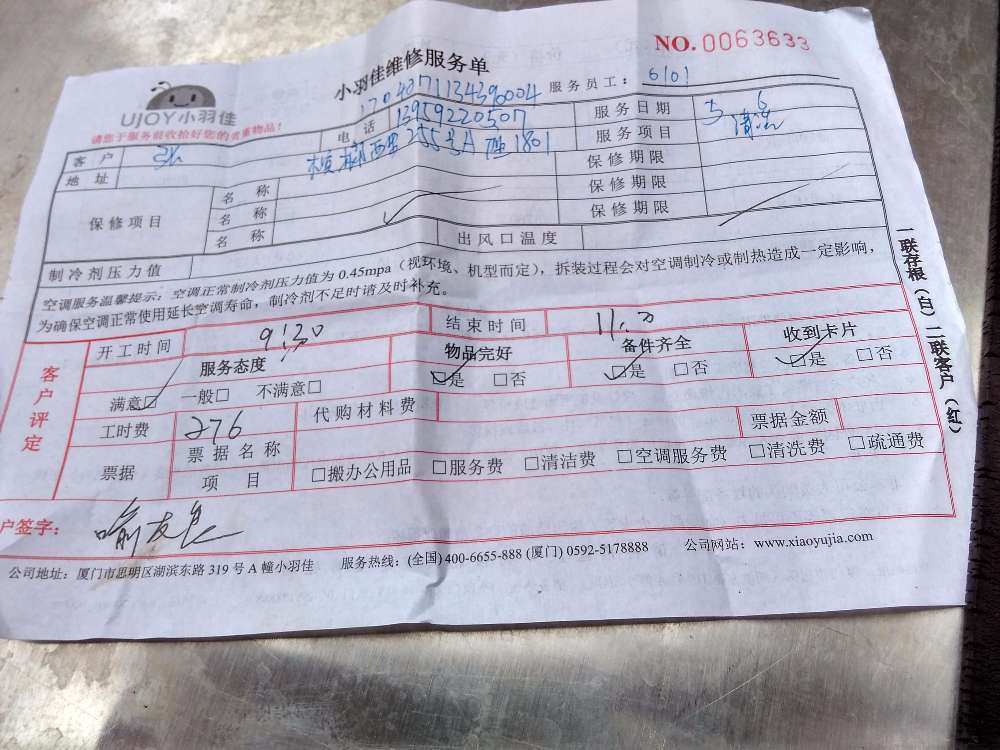 NO.0063633
小羽佳维修服务单
UJOY小羽佳
请您于服务前收拾好您的贵重物品!
服务员工: 6101
客户 张 电话 13959220507 服务日期 6
地址 西里255号A 1801 服务项目 清洗
保修项目 名称 保修期限
名称 保修期限
名称 保修期限
制冷剂压力值 出风口温度
空调服务温馨提示:空调正常制冷剂压力值为0.45mpa(视环境、机型而定),拆装过程会对空调制冷或制热造成一定影响,
为确保空调正常使用延长空调寿命,制冷剂不足时请及时补充。
客户评定
开工时间 9:30 结束时间 11:00
服务态度 物品完好 备件齐全 收到卡片
满意☑ 一般□ 不满意□ ☑是 □否 ☑是 □否 ☑是 □否
工时费 276 代购材料费 票据金额
票据 票据名称
项目 □搬办公用品 □服务费 □清洁费 □空调服务费 □清洗费 □疏通费
户签字: 喻友良
公司地址:厦门市思明区湖滨东路319号A幢小羽佳 服务热线:(全国)400-6655-888 (厦门) 0592-5178888 公司网站:www.xiaoyujia.com
一联存根(白) 二联客户(红)